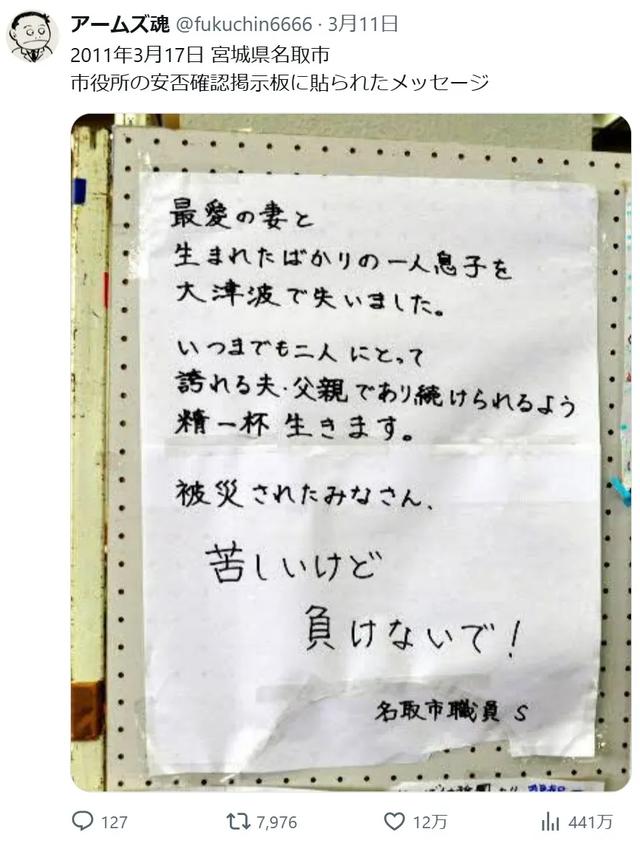 アームズ魂 @fukuchin6666 · 3月11日
2011年3月17日 宮城県名取市
市役所の安否確認掲示板に貼られたメッセージ
最愛の妻と
生まれたばかりの一人息子を
大津波で失いました。
いつまでも二人にとって
誇れる夫・父親であり続けられるよう
精一杯生きます。
被災されたみなさん、
苦しいけど
負けないで！
名取市職員 S
127 7,976 12万 441万